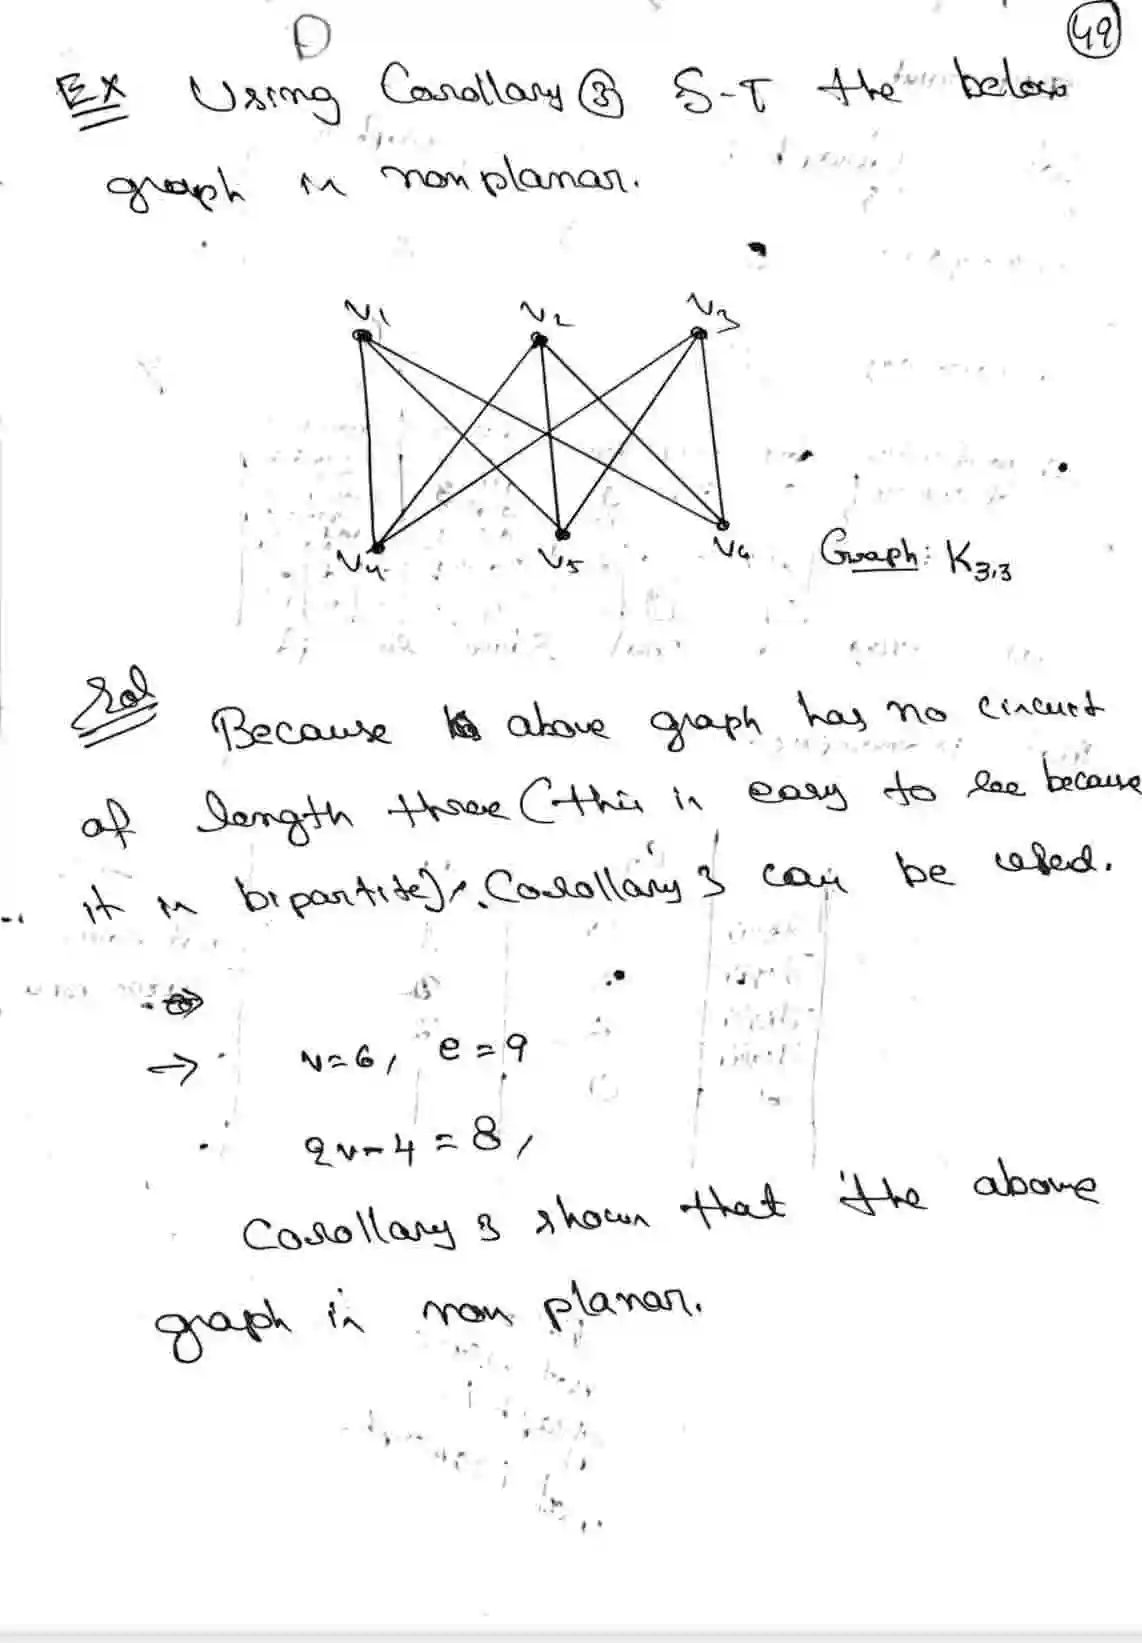 49
Ex Using Corollary ③ S-T the below
graph is nonplanar.
v1 v2 v3
v4 v5 v6
Graph: K3,3
Sol
Because above graph has no circuit
of length three (this is easy to see because
it is bipartite), Corollary 3 can be used.
→ v=6, e=9
2v-4=8,
Corollary 3 shows that the above
graph is non planar.